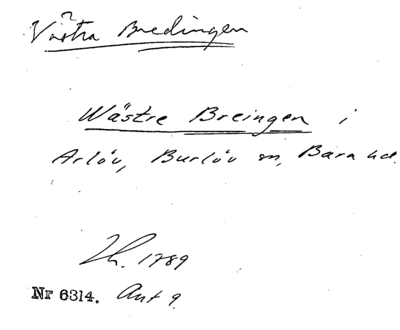 Västra Bredingen
Wästre Breingen i
Arlöv, Burlöv sn, Bara hd.
1789
Nr 6314. Ant 9.